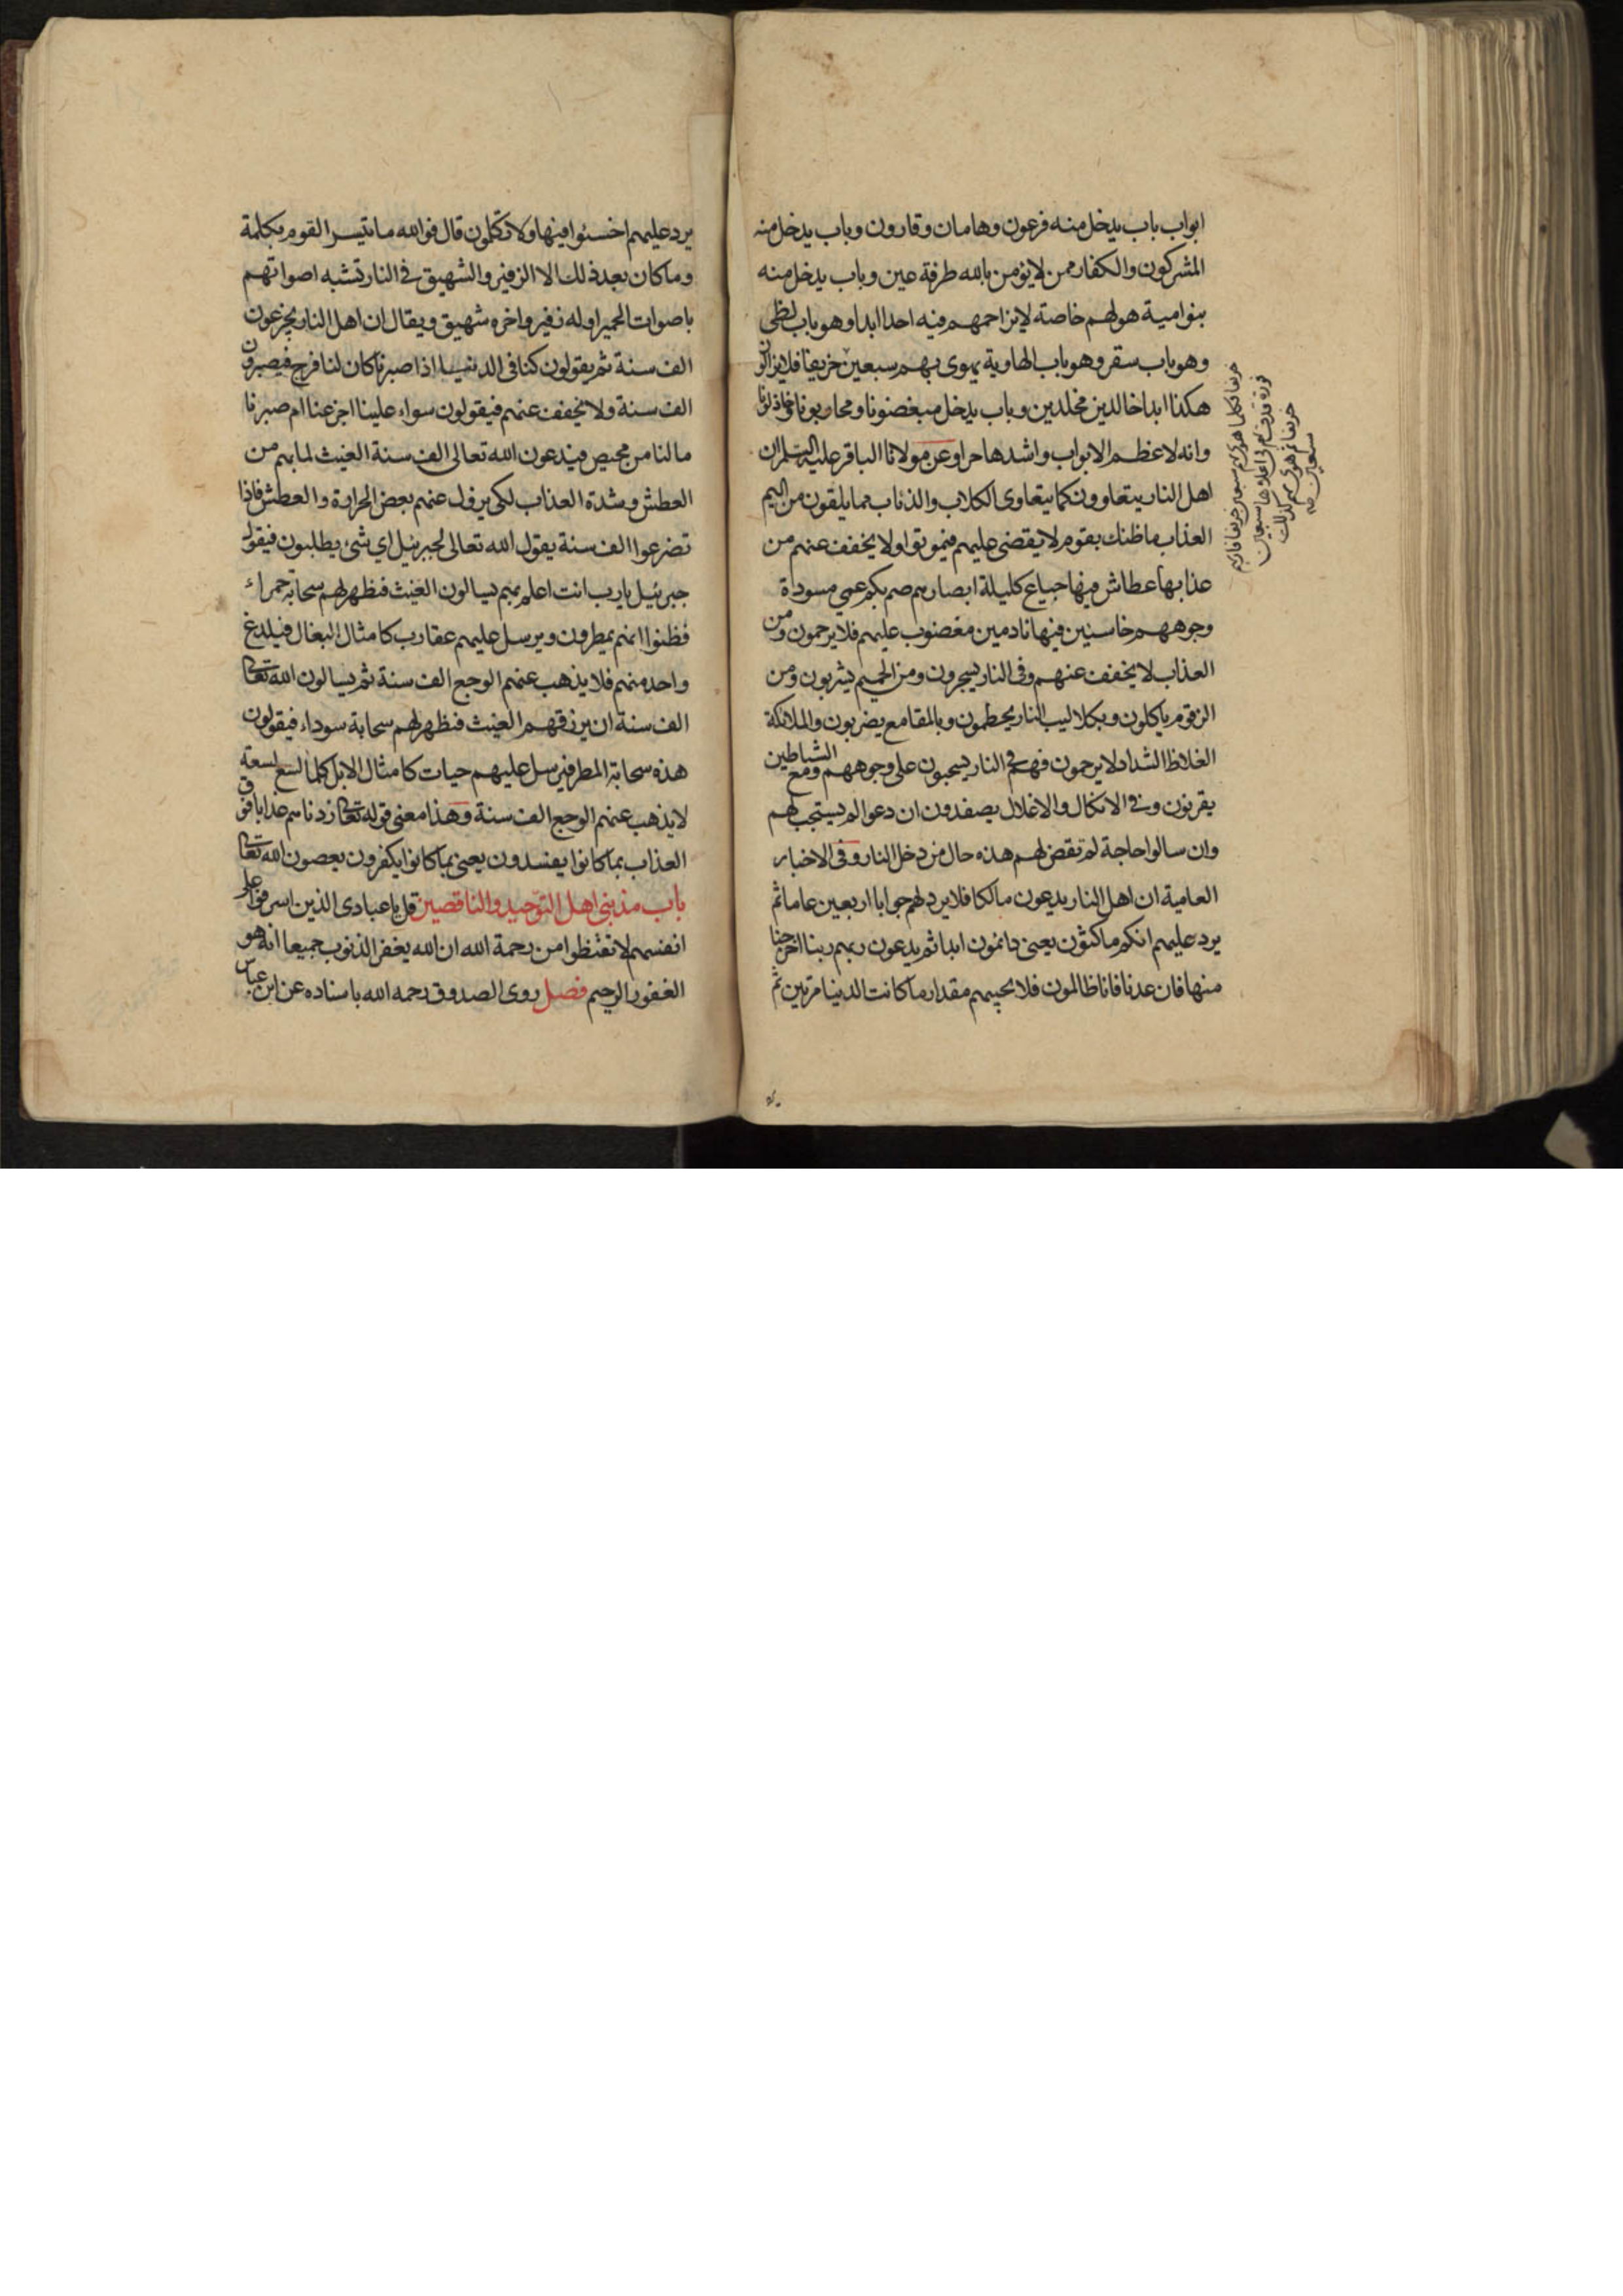 ابواب باب يدخل منه فرعون وهامان وقارون وباب يدخل منه
المشركون والكفار ممن لايؤمن بالله طرفة عين وباب يدخل منه
بنوامية هو لهم خاصة لايزاحمهم فيه احدا ابدا وهو باب لظى
وهو باب سقر وهو باب الهاوية يهوى بهم سبعين خريفا فلايزالون
هكذا ابدا خالدين مخلدين وباب يدخل مبغضونا ومحاربونا وخاذلونا
وانه لاعظم الابواب واشدها حرا وعن مولانا الباقر عليه السلم ان
اهل النار يتعاوون كما يتعاوى الكلاب والذئاب مما يلقون من اليم
العذاب ماظنك بقوم لايقضى عليهم فيموتوا ولا يخفف عنهم من
عذابها عطاش فيها جياع كليلة ابصارهم صم بكم عمي مسودة
وجوههم خاسئين فيها نادمين مغضوب عليهم فلايرحمون ومن
العذاب لايخفف عنهم وفى النار يسجرون ومن الحميم يشربون ومن
الزقوم ياكلون وبكلاليب النار يحطمون وبالمقامع يضربون والملائكة
الغلاظ الشداد لايرحمون فهم فى النار يسحبون على وجوههم ومع الشياطين
يقرنون وفى الانكال والاغلال يصفدون ان دعوا لم يستجب لهم
وان سالوا حاجة لم تقض لهم هذه حال من دخل النار وفى الاخبار
العامية ان اهل النار يدعون مالكا فلايرد لهم جوابا اربعين عاما ثم
يرد عليهم انكم ماكثون يعنى دائمون ابدا ثم يدعون ربهم ربنا اخرجنا
منها فان عدنا فانا ظالمون فلايجيبهم مقدار ما كانت الدنيا مرتين ثم
خريفا فكلما هوى بهم سبعين خريفا فار بهم
فورة قذف بهم فى اعلاها سبعين
خريفا ثم هوى بهم كذلك
سبعين
يرد عليهم اخسئوا فيها ولاتكلمون قال فوالله ماتيسر القوم بكلمة
وما كان بعد ذلك الا الزفير والشهيق فى النار تشبه اصواتهم
باصوات الحمير اوله زفير واخره شهيق ويقال ان اهل النار يجزعون
الف سنة ثم يقولون كنا فى الدنيا اذا صبرنا كان لنا فرج فيصبرون
الف سنة ولا يخفف عنهم فيقولون سواء علينا اجزعنا ام صبرنا
مالنا من محيص فيدعون الله تعالى الف سنة الغيث لما بهم من
العطش وشدة العذاب لكى يزول عنهم بعض الحرارة والعطش فاذا
تضرعوا الف سنة يقول الله تعالى لجبرئيل اي شئ يطلبون فيقول
جبرئيل يارب انت اعلم بهم يسالون الغيث فتظهر لهم سحابة حمراء
فظنوا انهم يمطرون ويرسل عليهم عقارب كامثال البغال فيلدغ
واحد منهم فلا يذهب عنهم الوجع الف سنة ثم يسالون الله تعالى
الف سنة ان يرزقهم الغيث فتظهر لهم سحابة سوداء فيقولون
هذه سحابة المطر فيرسل عليهم حيات كامثال الابل كلما لسع لسعة
لايذهب عنهم الوجع الف سنة وهذا معنى قوله تعالى زدناهم عذابا فوق
العذاب بما كانوا يفسدون يعنى بما كانوا يكفرون يعصون الله تعالى
باب مذنبى اهل التوحيد والناقصين قل ياعبادى الذين اسرفوا على
انفسهم لاتقنطوا من رحمة الله ان الله يغفر الذنوب جميعا انه هو
الغفور الرحيم فصل روى الصدوق رحمه الله باسناده عن ابن عباس